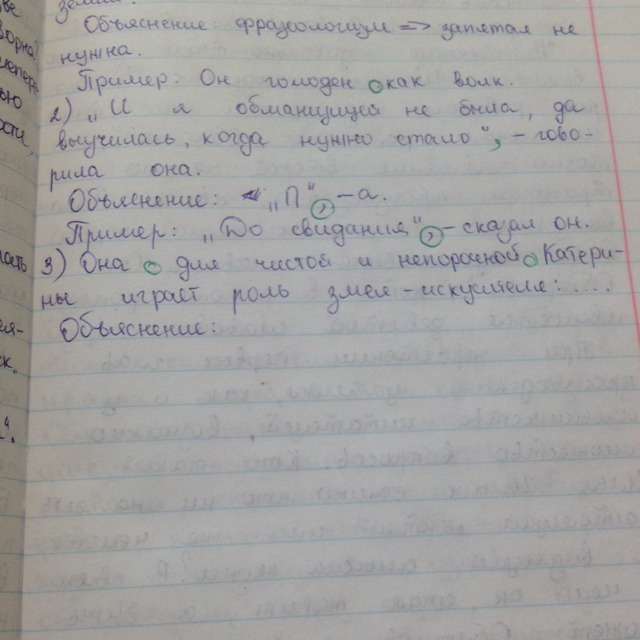 Объяснение: фразеологизм => запятая не
нужна.
Пример: Он голоден как волк.
2) „И я обманщицей не была, да
выучилась, когда нужно стало“, – гово-
рила она.
Объяснение: „П“, – а.
Пример: „До свидания“, – сказал он.
3) Она для чистой и непорочной Катери-
ны играет роль змея-искусителя: ...
Объяснение: